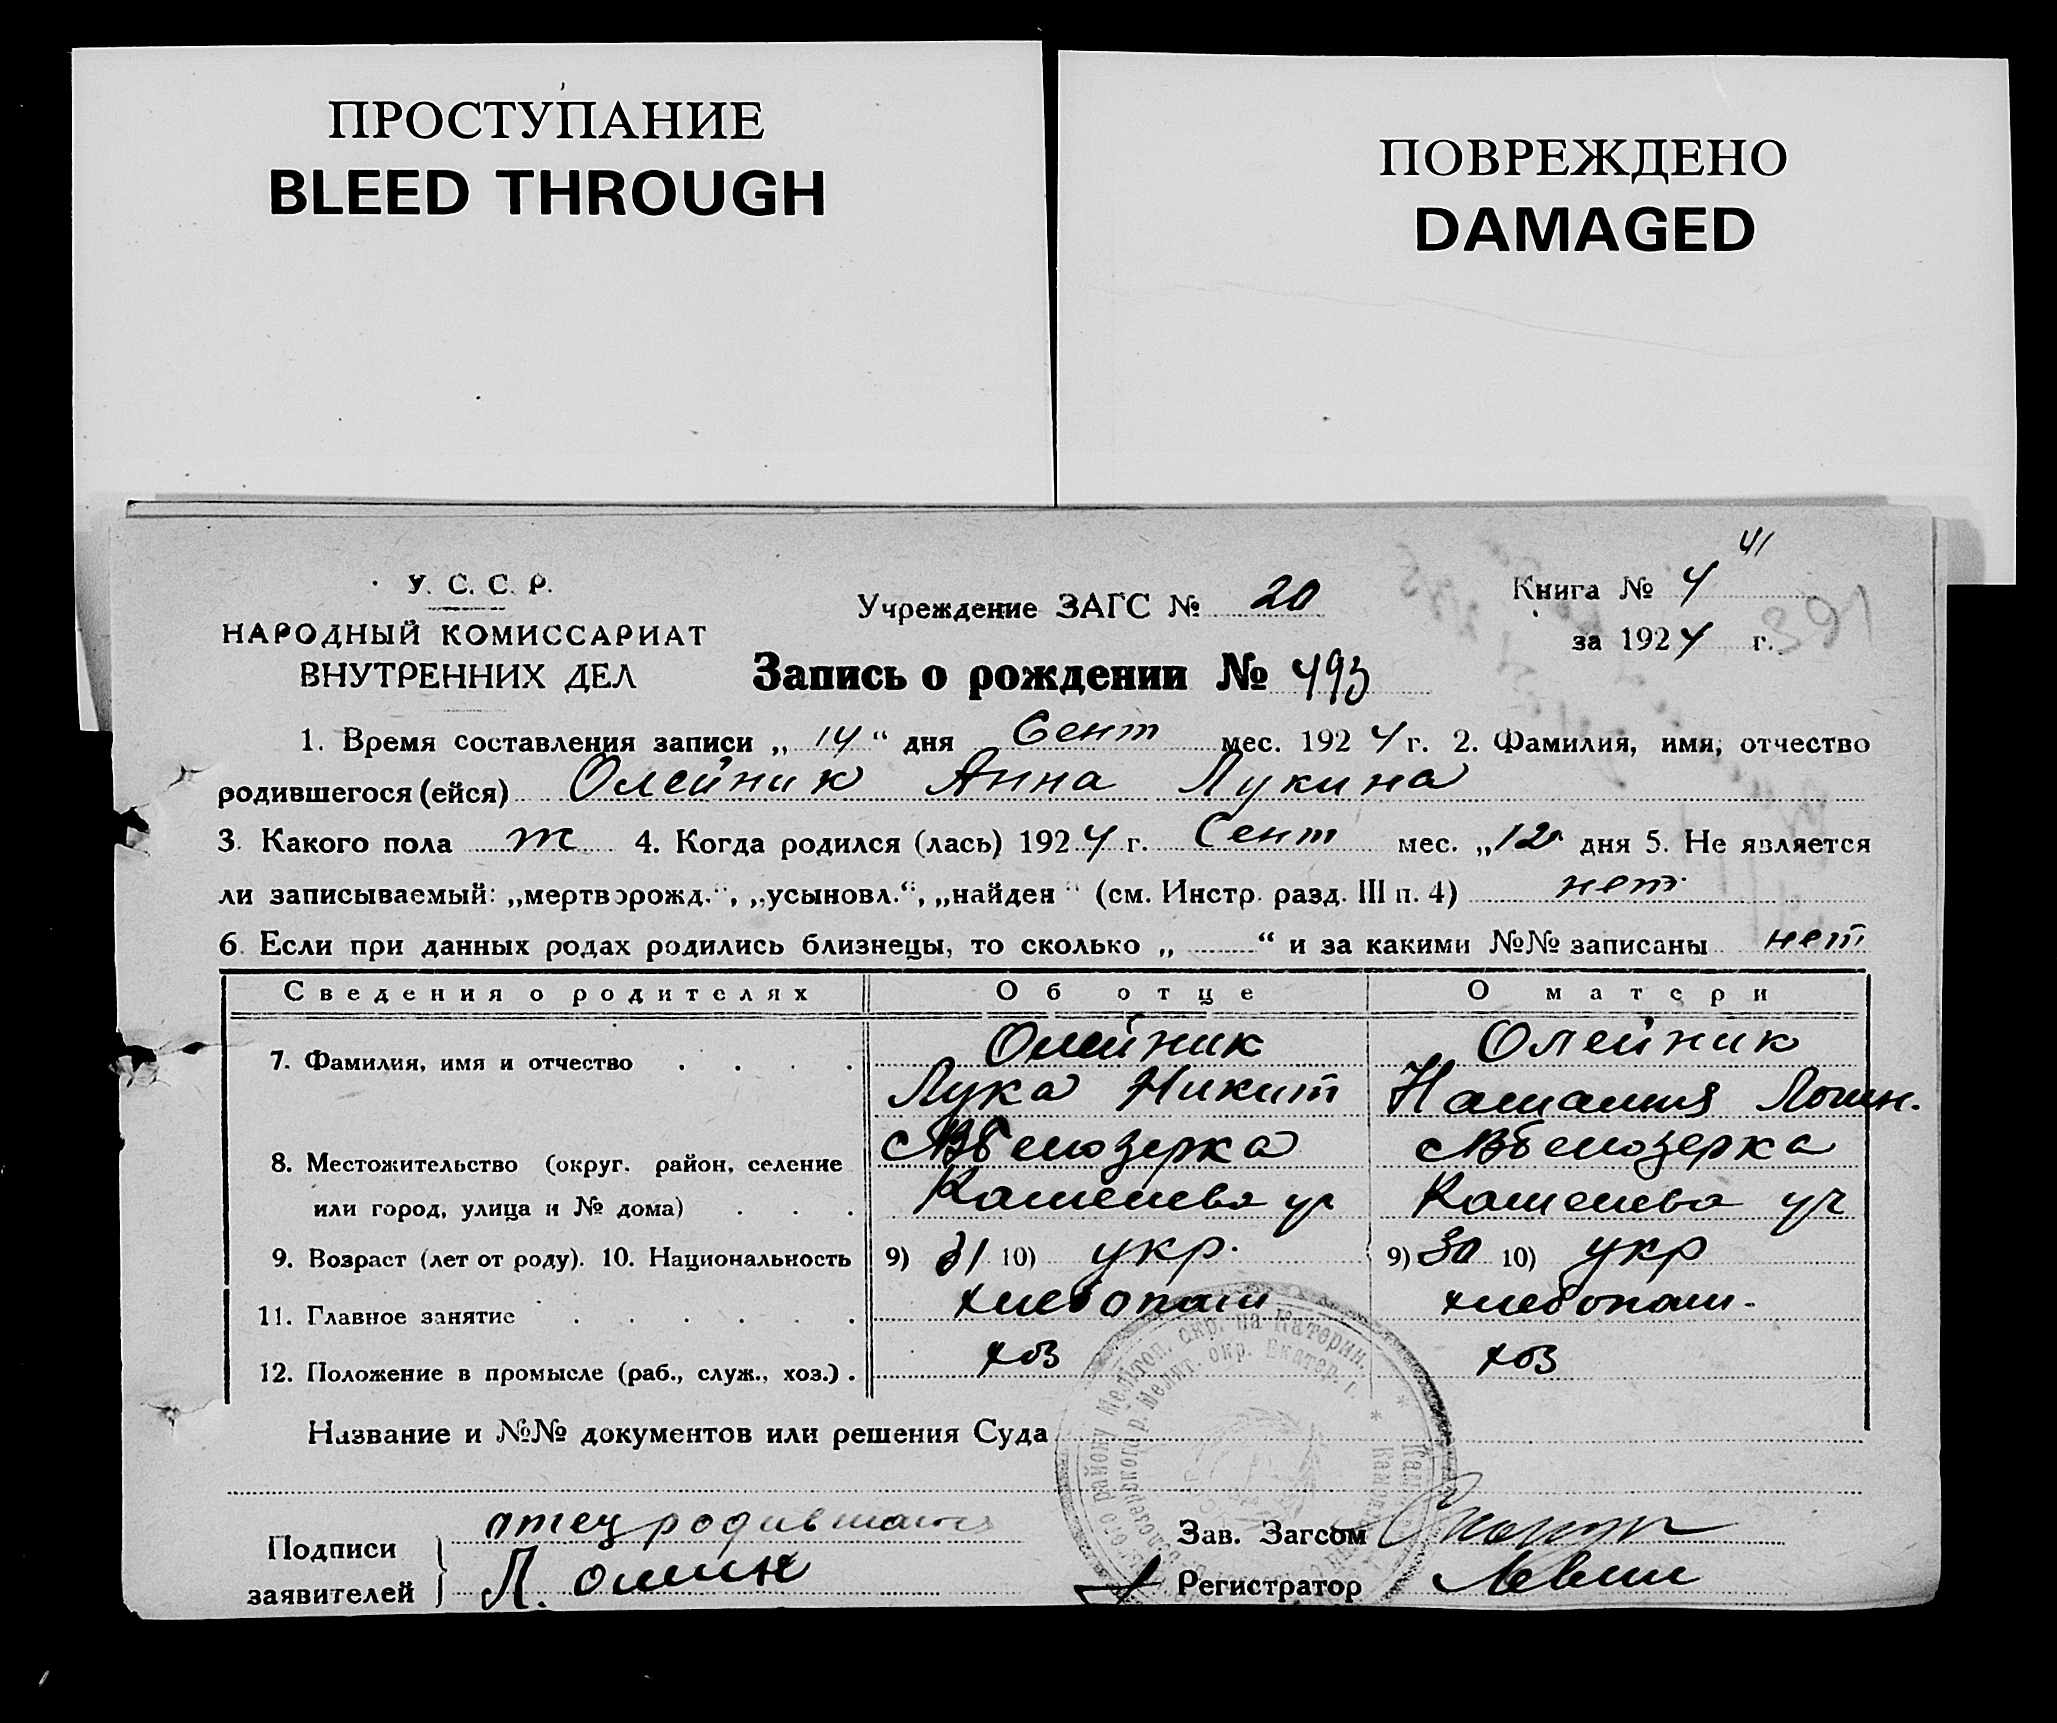 ПРОСТУПАНИЕ
BLEED THROUGH
ПОВРЕЖДЕНО
DAMAGED
41
У. С. С. Р.
НАРОДНЫЙ КОМИССАРИАТ
ВНУТРЕННИХ ДЕЛ
Учреждение ЗАГС № 20
Книга № 4
за 1924 г.
391
Запись о рождении № 493
1. Время составления записи „14“ дня Сент мес. 1924 г. 2. Фамилия, имя, отчество
родившегося (ейся) Олейник Анна Лукина
3. Какого пола ж 4. Когда родился (лась) 1924 г. Сент мес. „12 дня 5. Не является
ли записываемый: „мертворожд.“, „усыновл.“, „найден“ (см. Инстр. разд. III п. 4) нет
6. Если при данных родах родились близнецы, то сколько „ “ и за какими №№ записаны нет
Сведения о родителях Об отце О матери
7. Фамилия, имя и отчество Олейник Олейник
Лука Никит Наталия
8. Местожительство (округ. район, селение Белозерка Белозерка
или город, улица и № дома)
9. Возраст (лет от роду). 10. Национальность 9) 31 10) укр. 9) 30 10) укр
11. Главное занятие хлебопаш хлебопаш.
12. Положение в промысле (раб., служ., хоз.) хоз хоз
Название и №№ документов или решения Суда
Подписи заявителей
отец родившагося
Л. Олейн
Зав. Загсом
Регистратор Левин